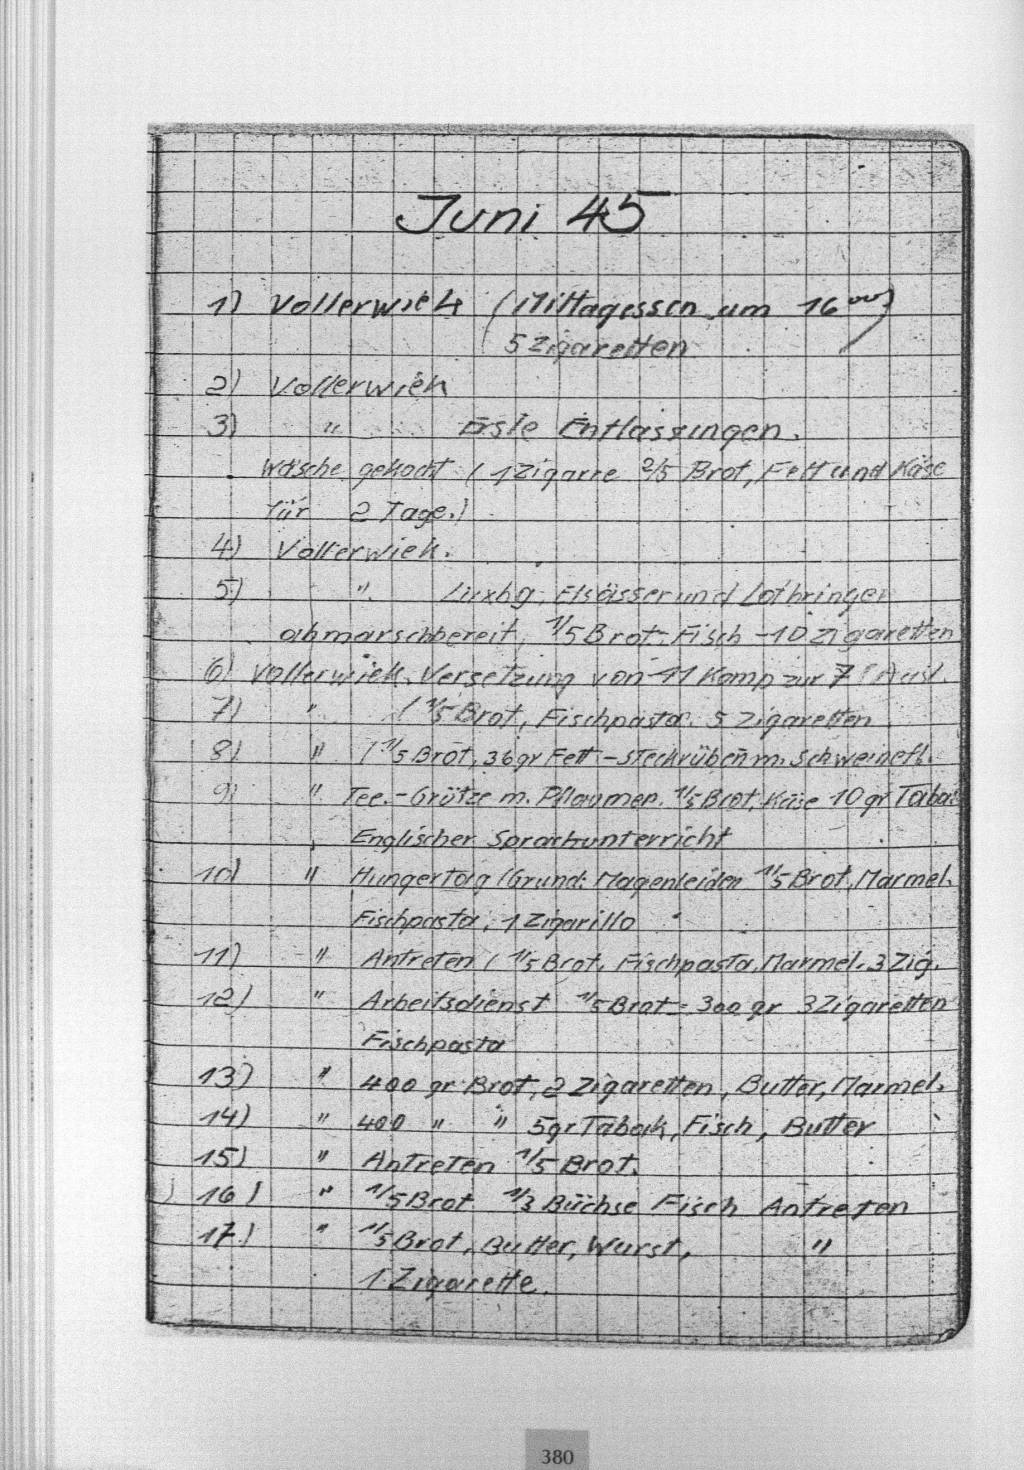 Juni 45
1) Vollerwiek (Mittagessen um 16 00)
5 Zigaretten
2) Vollerwiek
3) " Erste Entlassungen.
Wäsche gekocht (1 Zigarre 2/5 Brot, Fett und Käse
für 2 Tage.)
4) Vollerwiek.
5) " Luxbg, Elsässer und Lothringer
abmarschbereit, 1/5 Brot-Fisch-10 Zigaretten
6) Vollerwiek. Versetzung von 11 Komp zur 7
7) " (1/5 Brot, Fischpasta. 5 Zigaretten
8) " (1/5 Brot, 36 gr Fett-Steckrüben m. Schweinefl.
9) " Tee.-Grütze m. Pflaumen. 1/5 Brot, Käse 10 gr Tabak
Englischer Sprachunterricht
10) " Hungertag (Grund: Magenleiden 1/5 Brot, Marmel.
Fischpasta, 1 Zigarillo
11) " Antreten (1/5 Brot, Fischpasta, Marmel. 3 Zig.
12) " Arbeitsdienst 1/5 Brot = 300 gr 3 Zigaretten
Fischpasta
13) " 400 gr Brot, 2 Zigaretten, Butter, Marmel.
14) " 400 " " 5 gr Tabak, Fisch, Butter
15) " Antreten 1/5 Brot.
16) " 1/5 Brot 1/3 Büchse Fisch Antreten
17.) " 1/5 Brot, Butter, Wurst, "
1 Zigarette.
380